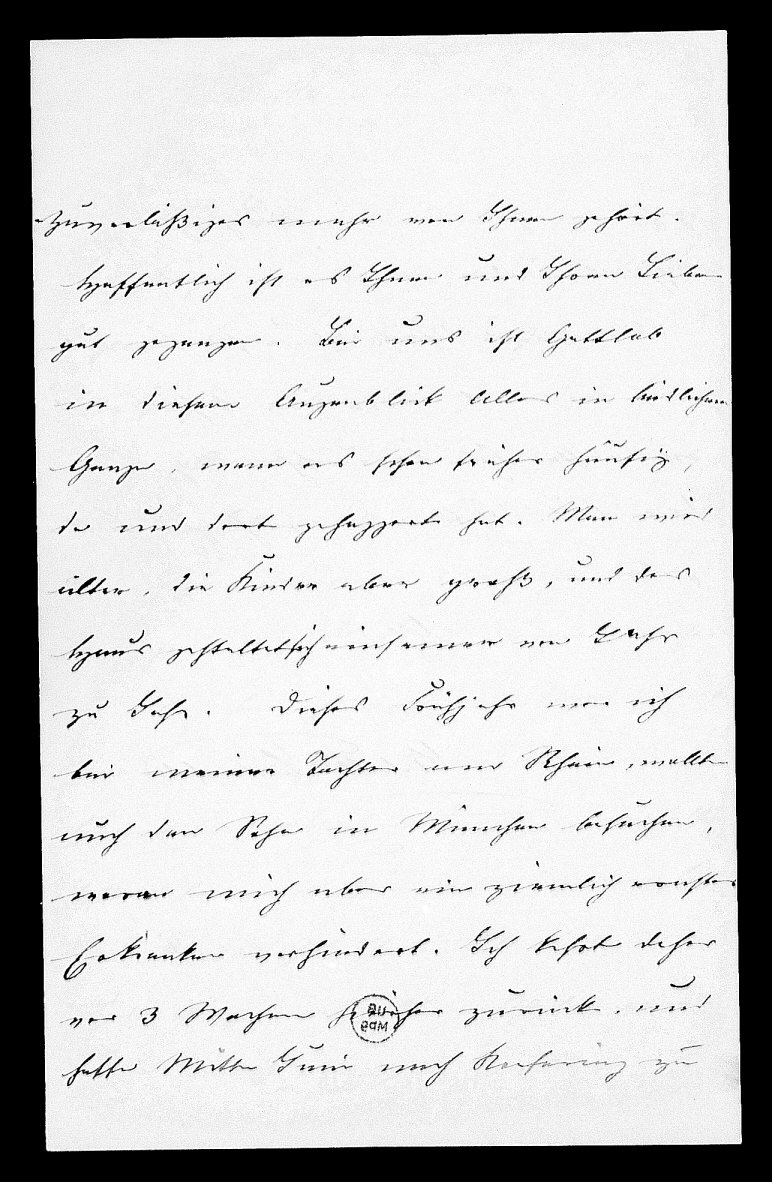 Zuverläßiges mehr von Ihnen gehört.
Hoffentlich ist es Ihnen und Ihren Lieben
gut gegangen. Bei uns ist Gottlob
in diesem Augenblick Alles in leidlichem
Gange, wenn es schon früher häufig,
da und dort gehappert hat. Man wird
älter, die Kinder aber groß, und das
Haus gestaltet sich einsamer von Jahr
zu Jahr. Dieses Frühjahr war ich
bei meiner Tochter am Rhein, wollte
auch den Sohn in München besuchen,
woran mich aber ein ziemlich ernstes
Erkranken verhindert. Ich kehrte daher
vor 3 Wochen hieher zurück, und
hoffe Mitte Juni nach zu